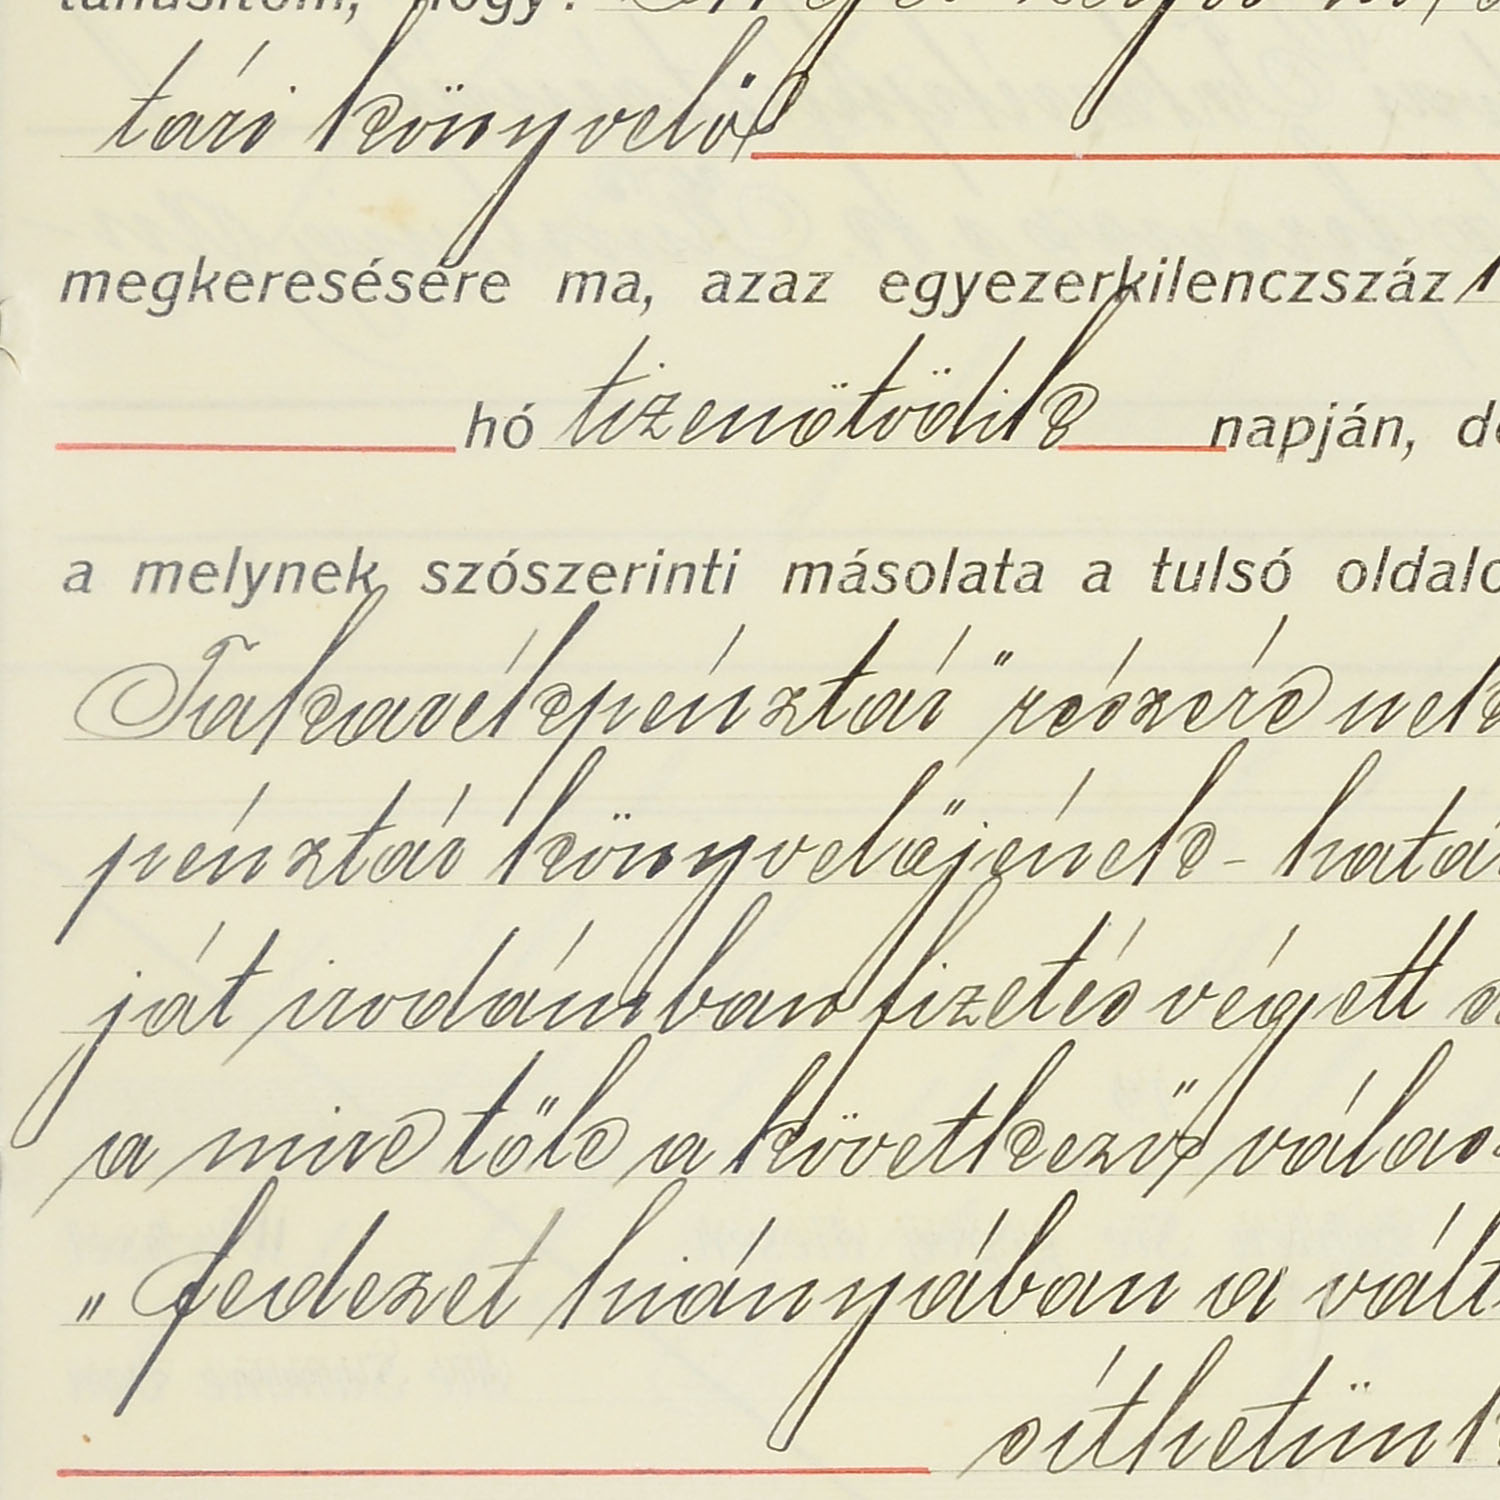 tanúsítom, hogy:
tári könyvelő
megkeresésére ma, azaz egyezerkilenczszáz
hó tizenötödik napján, de
a melynek szószerinti másolata a tulsó oldalo
Takarékpénztár" részére nek
pénztár könyvelőjének - hatá
ját irodámban fizetés végett
a mire tőle a következő válas
„Fedezet hiányában a vált
síthetünk